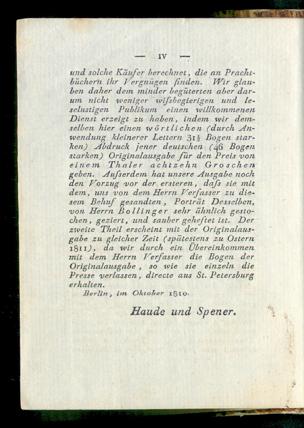 — IV —
und solche Käufer berechnet, die an Pracht-
büchern ihr Vergnügen finden. Wir glau-
ben daher dem minder begüterten aber dar-
um nicht weniger wißbegierigen und le-
selustigen Publikum einen willkommenen
Dienst erzeigt zu haben, indem wir dem-
selben hier einen wörtlichen (durch An-
wendung kleinerer Lettern 31½ Bogen star-
ken) Abdruck jener deutschen (46 Bogen
starken) Originalausgabe für den Preis von
einem Thaler achtzehn Groschen
geben. Außerdem hat unsere Ausgabe noch
den Vorzug vor der ersteren, daß sie mit
dem, uns von dem Herrn Verfasser zu die-
sem Behuf gesandten, Porträt Desselben,
von Herrn Bollinger sehr ähnlich gesto-
chen, geziert, und sauber geheftet ist. Der
zweite Theil erscheint mit der Originalaus-
gabe zu gleicher Zeit (spätestens zu Ostern
1811), da wir durch ein Übereinkommen
mit dem Herrn Verfasser die Bogen der
Originalausgabe, so wie sie einzeln die
Presse verlassen, directe aus St. Petersburg
erhalten.
Berlin, im Oktober 1810.
Haude und Spener.